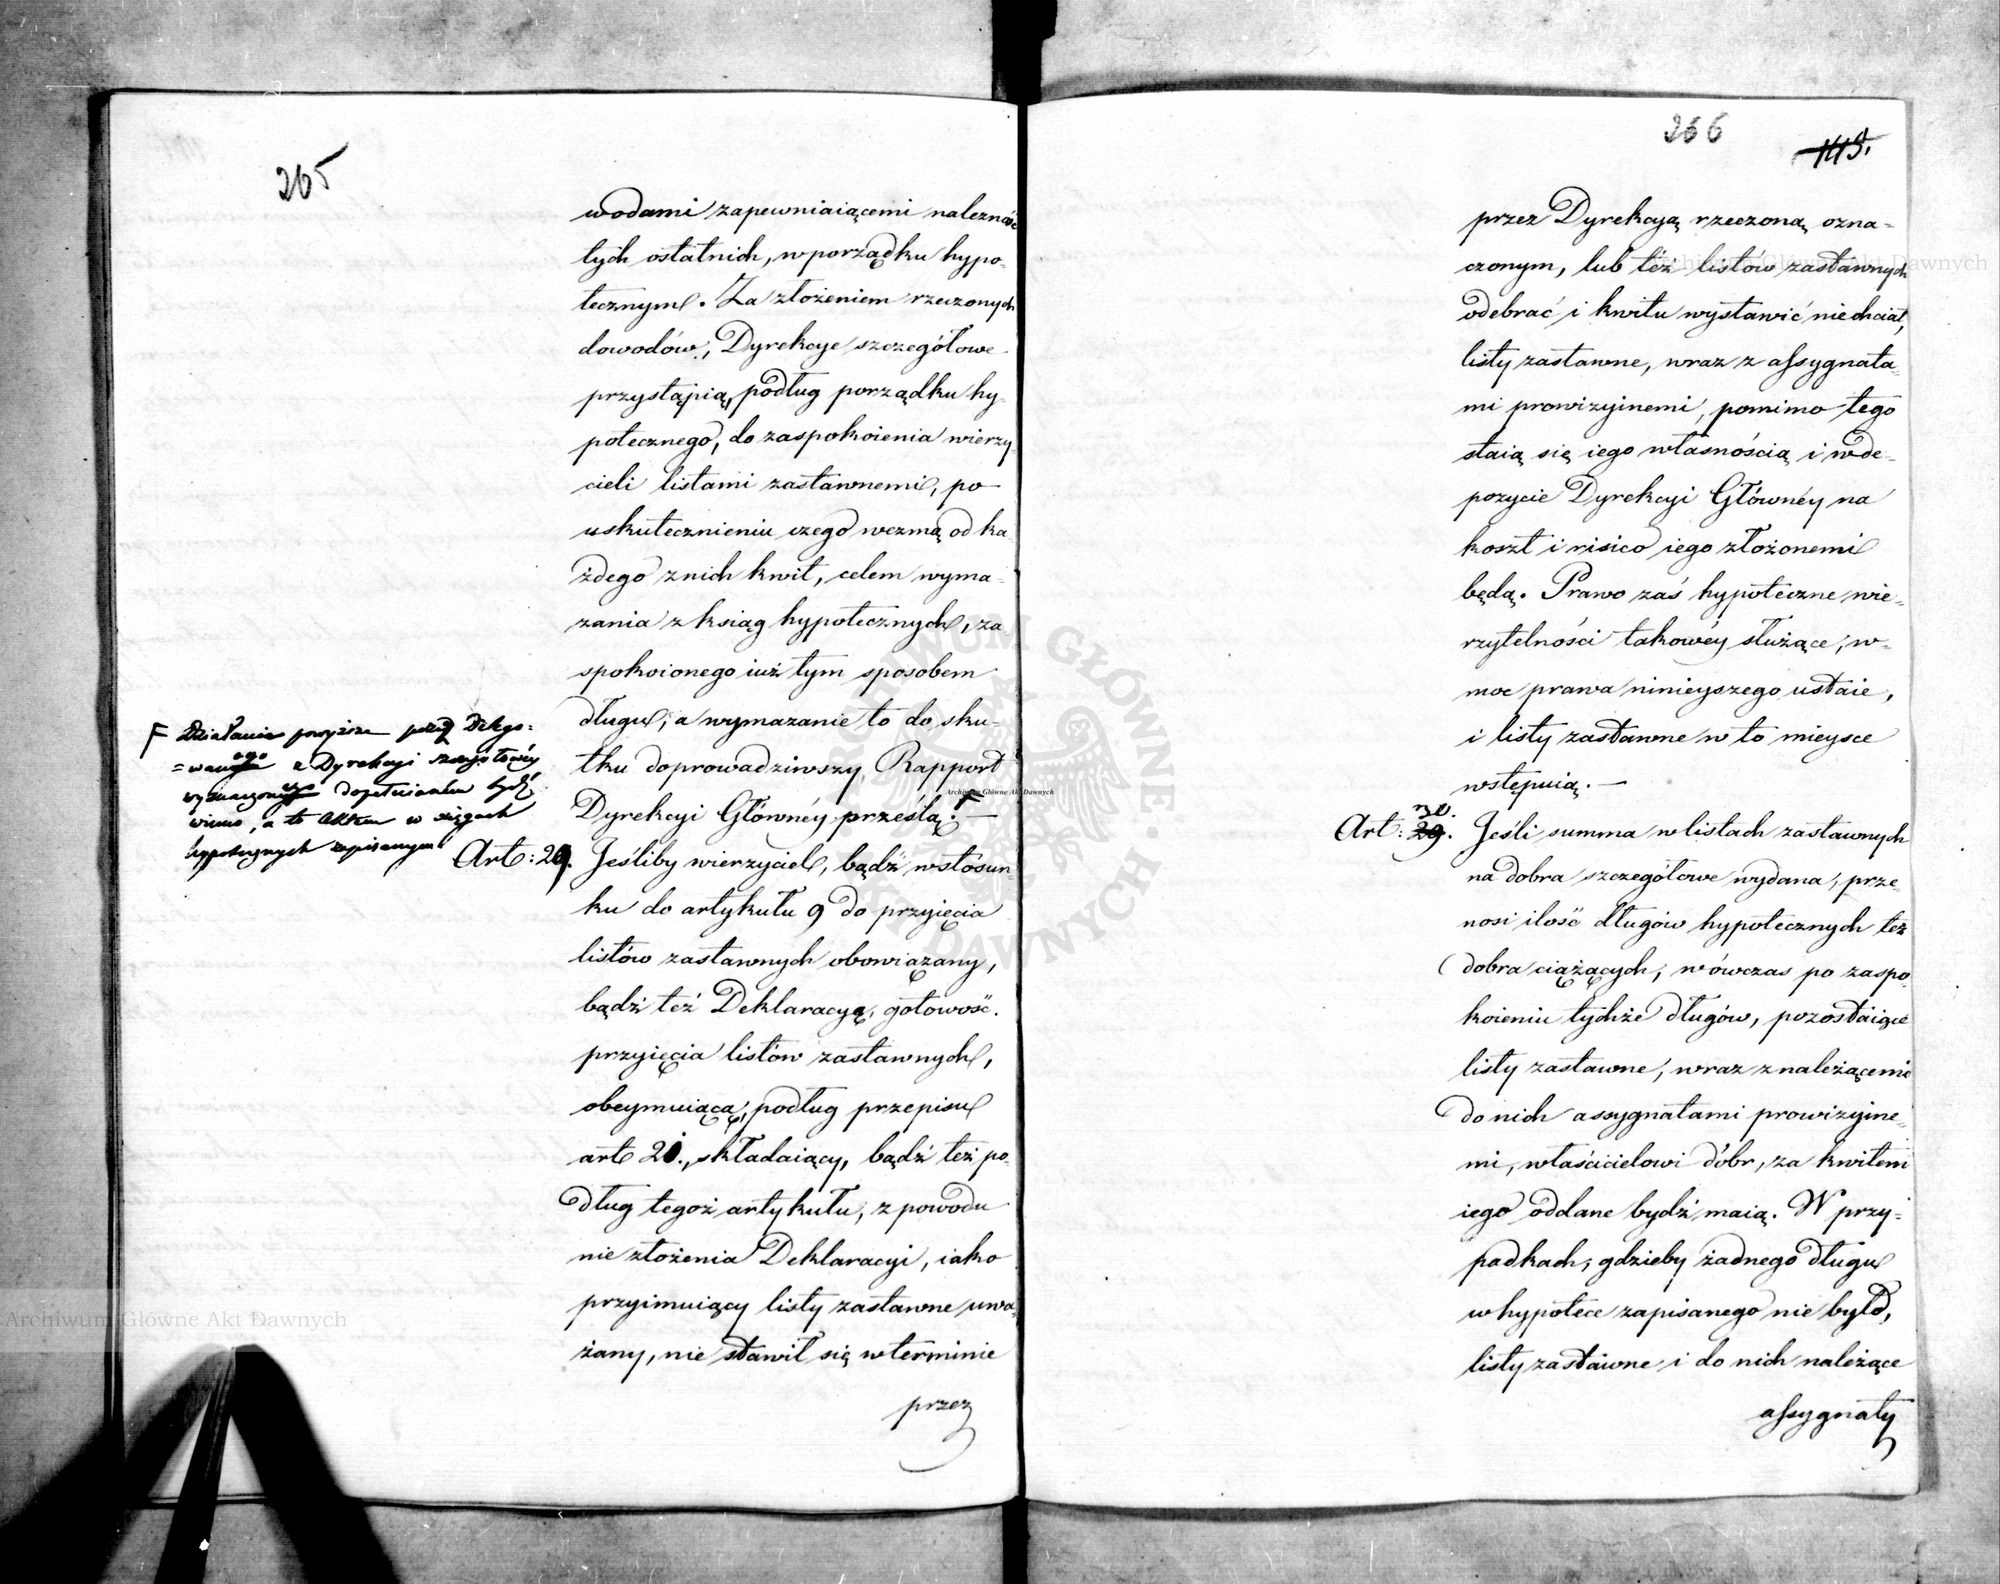 265
wodami zapewniaiącemi należność
tych ostatnich, w porządku hypo-
tecznym. Za złożeniem rzeczonych
dowodów, Dyrekcye szczegółowe
przystąpią, podług porządku hy-
potecznego, do zaspokoienia wierzy-
cieli listami zastawnemi, po
uskutecznieniu czego wezmą od ka-
żdego z nich kwit, celem wyma-
zania z ksiąg hypotecznych, za
spokoionego iuż tym sposobem
długu, a wymazanie to do sku-
tku doprowadziwszy, Rapport
Dyrekcyi Głównéy prześlą. F —
F Działanie powyższe przez Delego-
=wanego z Dyrekcyi szczegółowéy
wyznaczonego dopełnionem bydź
winno, a to Aktem w xięgach
hypotecznych zapisanym
Art: 29. Jeśliby wierzyciel, bądź w stósun-
ku do artykułu 9 do przyięcia
listów zastawnych obowiązany,
bądź też Deklaracyą, gotowość
przyięcia listów zastawnych,
obeymuiącą, podług przepisu
art 21., składaiący, bądź też po-
dług tegoż artykułu, z powodu
nie złożenia Deklaracyi, iako
przyimuiący listy zastawne uwa-
żany, nie stawił się w terminie
przez
266
113.
przez Dyrekcyą rzeczoną ozna-
czonym, lub też listów zastawnych
odebrać i kwitu wystawić nie chciał,
listy zastawne, wraz z assygnata-
mi prowizyinemi, pomimo tego
staią się iego własnością i w de-
pozycie Dyrekcyi Głównéy na
koszt i risico iego złożonemi
będą. Prawo zaś hypoteczne wie-
rzytelności takowéy służące, w
moc prawa ninieyszego ustaie,
i listy zastawne w to mieysce
wstępuią. —
30.
Art: 29. Jeśli summa w listach zastawnych
na dobra szczegółowe wydana, prze-
nosi ilość długów hypotecznych też
dobra ciążących, wówczas po zaspo-
koieniu tychże długów, pozostaiące
listy zastawne, wraz z należącemi
do nich assygnatami prowizyine-
mi, właścicielowi dóbr, za kwitem
iego oddane bydź maią. W przy-
padkach, gdzieby żadnego długu
w hypotece zapisanego nie było,
listy zastawne i do nich należące
assygnaty
Archiwum Główne Akt Dawnych
Archiwum Główne Akt Dawnych
Archiwum Główne Akt Dawnych
ARCHIWUM GŁÓWNE AKT DAWNYCH